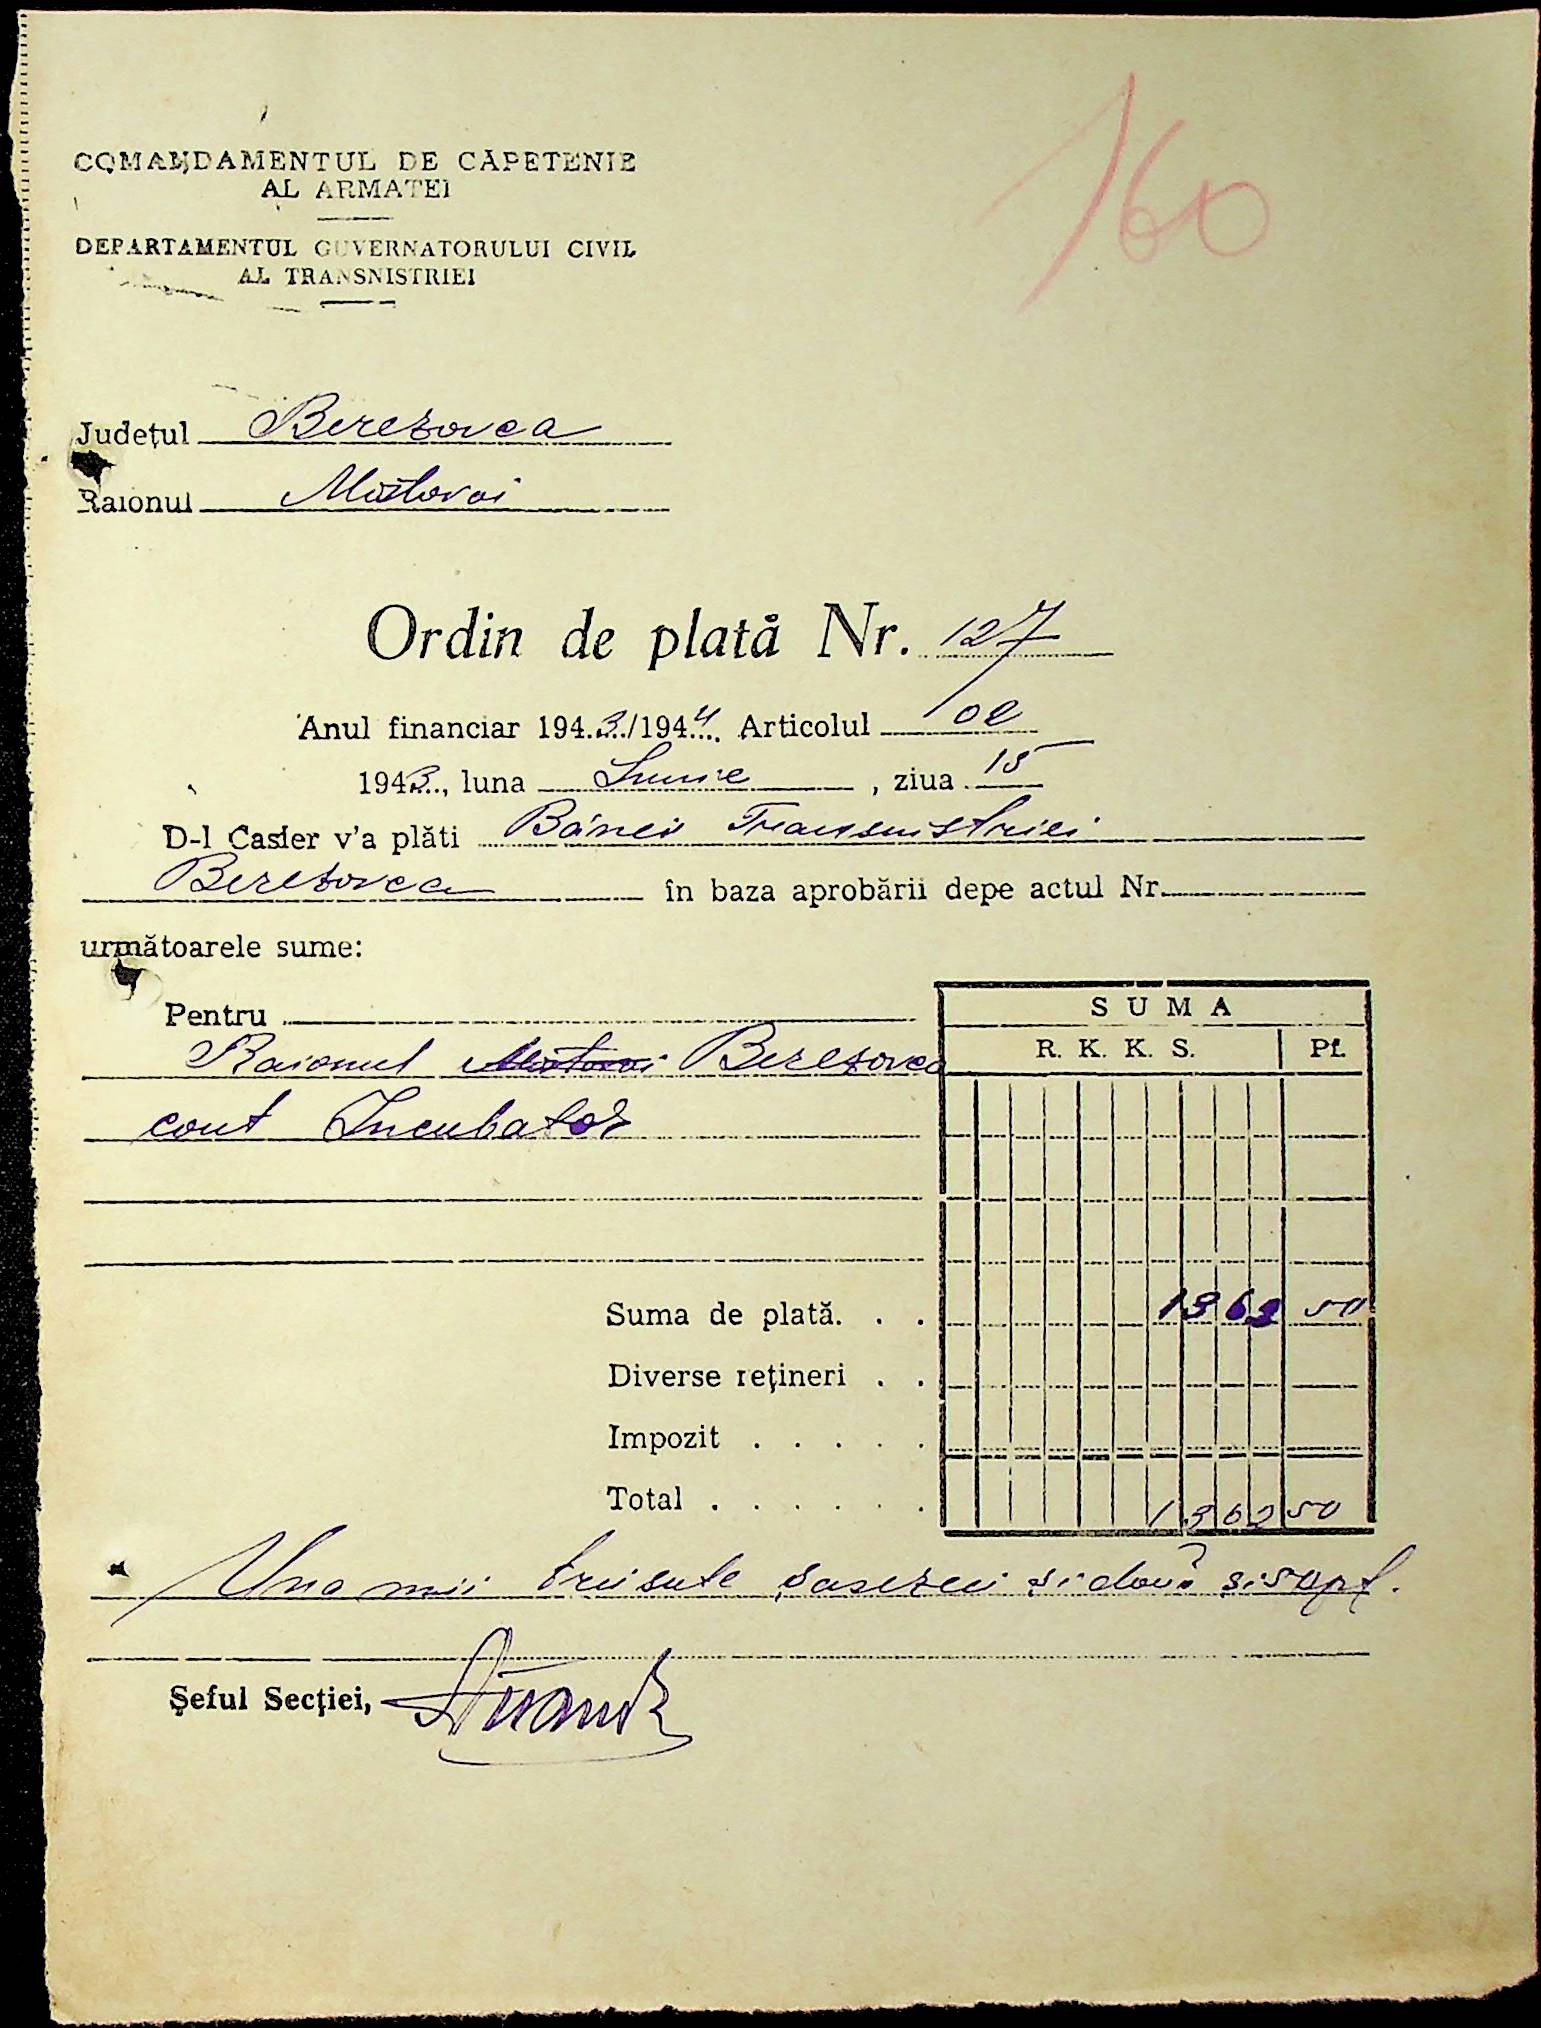 160
COMANDAMENTUL DE CĂPETENIE
AL ARMATEI
DEPARTAMENTUL GUVERNATORULUI CIVIL
AL TRANSNISTRIEI
Județul Berezovca
Raionul Mostovoi
Ordin de plată Nr. 127
Anul financiar 1943/1944 Articolul 102
1943, luna Iunie, ziua 15
D-l Casier v'a plăti Băncii Transnistriei
Berezovca în baza aprobării depe actul Nr.
următoarele sume:
Pentru
SUMA
R. K. K. S. Pf.
Raionul Mostovoi Berezovca
cont Incubator
Suma de plată. . . 1362 50
Diverse rețineri . .
Impozit . . . . .
Total . . . . . . 1362 50
Una mii trei sute șasezeci și două și 50 pf.
Șeful Secției,